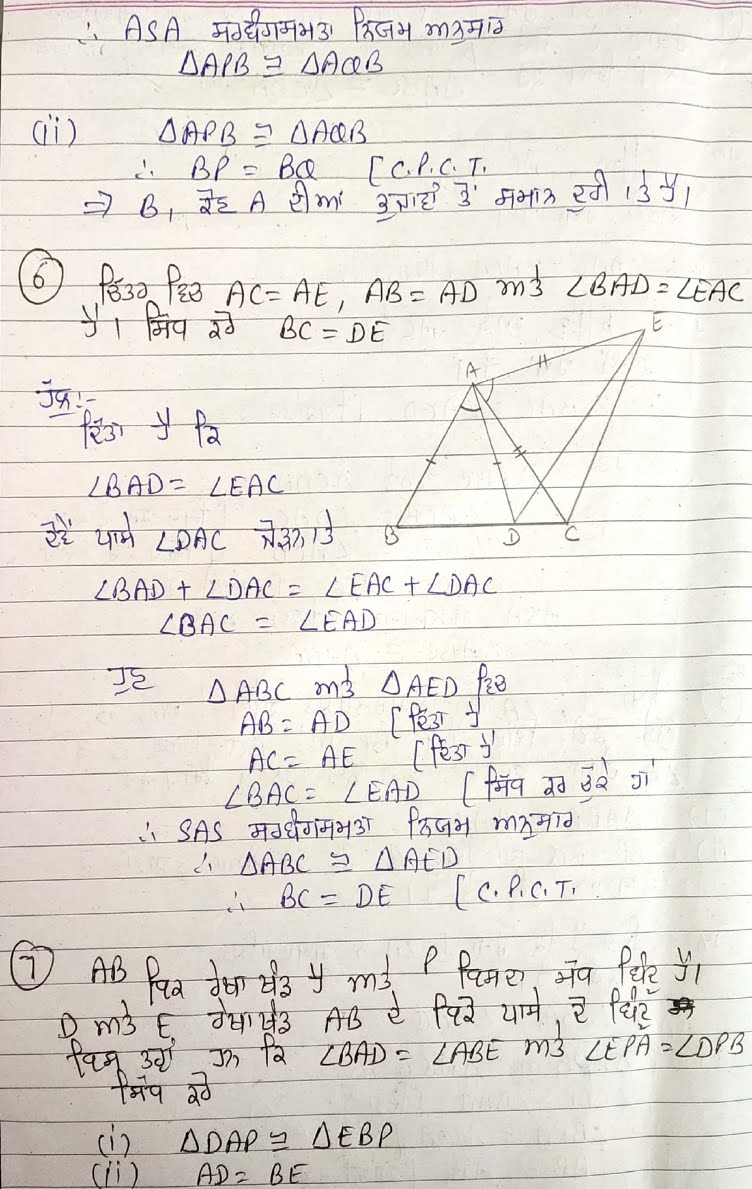 ∴ ASA ਸਰਬੰਗਸਮਤਾ ਨਿਯਮ ਅਨੁਸਾਰ
ΔAPB ≅ ΔAQB
(ii) ΔAPB ≅ ΔAQB
∴ BP = BQ [C.P.C.T.
⇒ B, ਕੋਣ A ਦੀਆਂ ਭੁਜਾਵਾਂ ਤੋਂ ਸਮਾਨ ਦੂਰੀ ਤੇ ਹੈ।
6 ਚਿੱਤਰ ਵਿਚ AC = AE, AB = AD ਅਤੇ ∠BAD = ∠EAC
ਹੈ। ਸਿੱਧ ਕਰੋ BC = DE
E
A
B D C
ਹੱਲ:-
ਦਿੱਤਾ ਹੈ ਕਿ
∠BAD = ∠EAC
ਦੋਵੇਂ ਪਾਸੇ ∠DAC ਜੋੜਨ ਤੇ
∠BAD + ∠DAC = ∠EAC + ∠DAC
∠BAC = ∠EAD
ਹੁਣ ΔABC ਅਤੇ ΔAED ਵਿਚ
AB = AD [ਦਿੱਤਾ ਹੈ
AC = AE [ਦਿੱਤਾ ਹੈ
∠BAC = ∠EAD [ਸਿੱਧ ਕਰ ਚੁੱਕੇ ਹਾਂ
∴ SAS ਸਰਬੰਗਸਮਤਾ ਨਿਯਮ ਅਨੁਸਾਰ
∴ ΔABC ≅ ΔAED
∴ BC = DE [C.P.C.T.
7 AB ਇਕ ਰੇਖਾ ਖੰਡ ਹੈ ਅਤੇ P ਇਸਦਾ ਮੱਧ ਬਿੰਦੂ ਹੈ।
D ਅਤੇ E ਰੇਖਾ ਖੰਡ AB ਦੇ ਇਕੋ ਪਾਸੇ ਦੋ ਬਿੰਦੂ
ਇਸ ਤਰਾਂ ਹਨ ਕਿ ∠BAD = ∠ABE ਅਤੇ ∠EPA = ∠DPB
ਸਿੱਧ ਕਰੋ
(i) ΔDAP ≅ ΔEBP
(ii) AD = BE